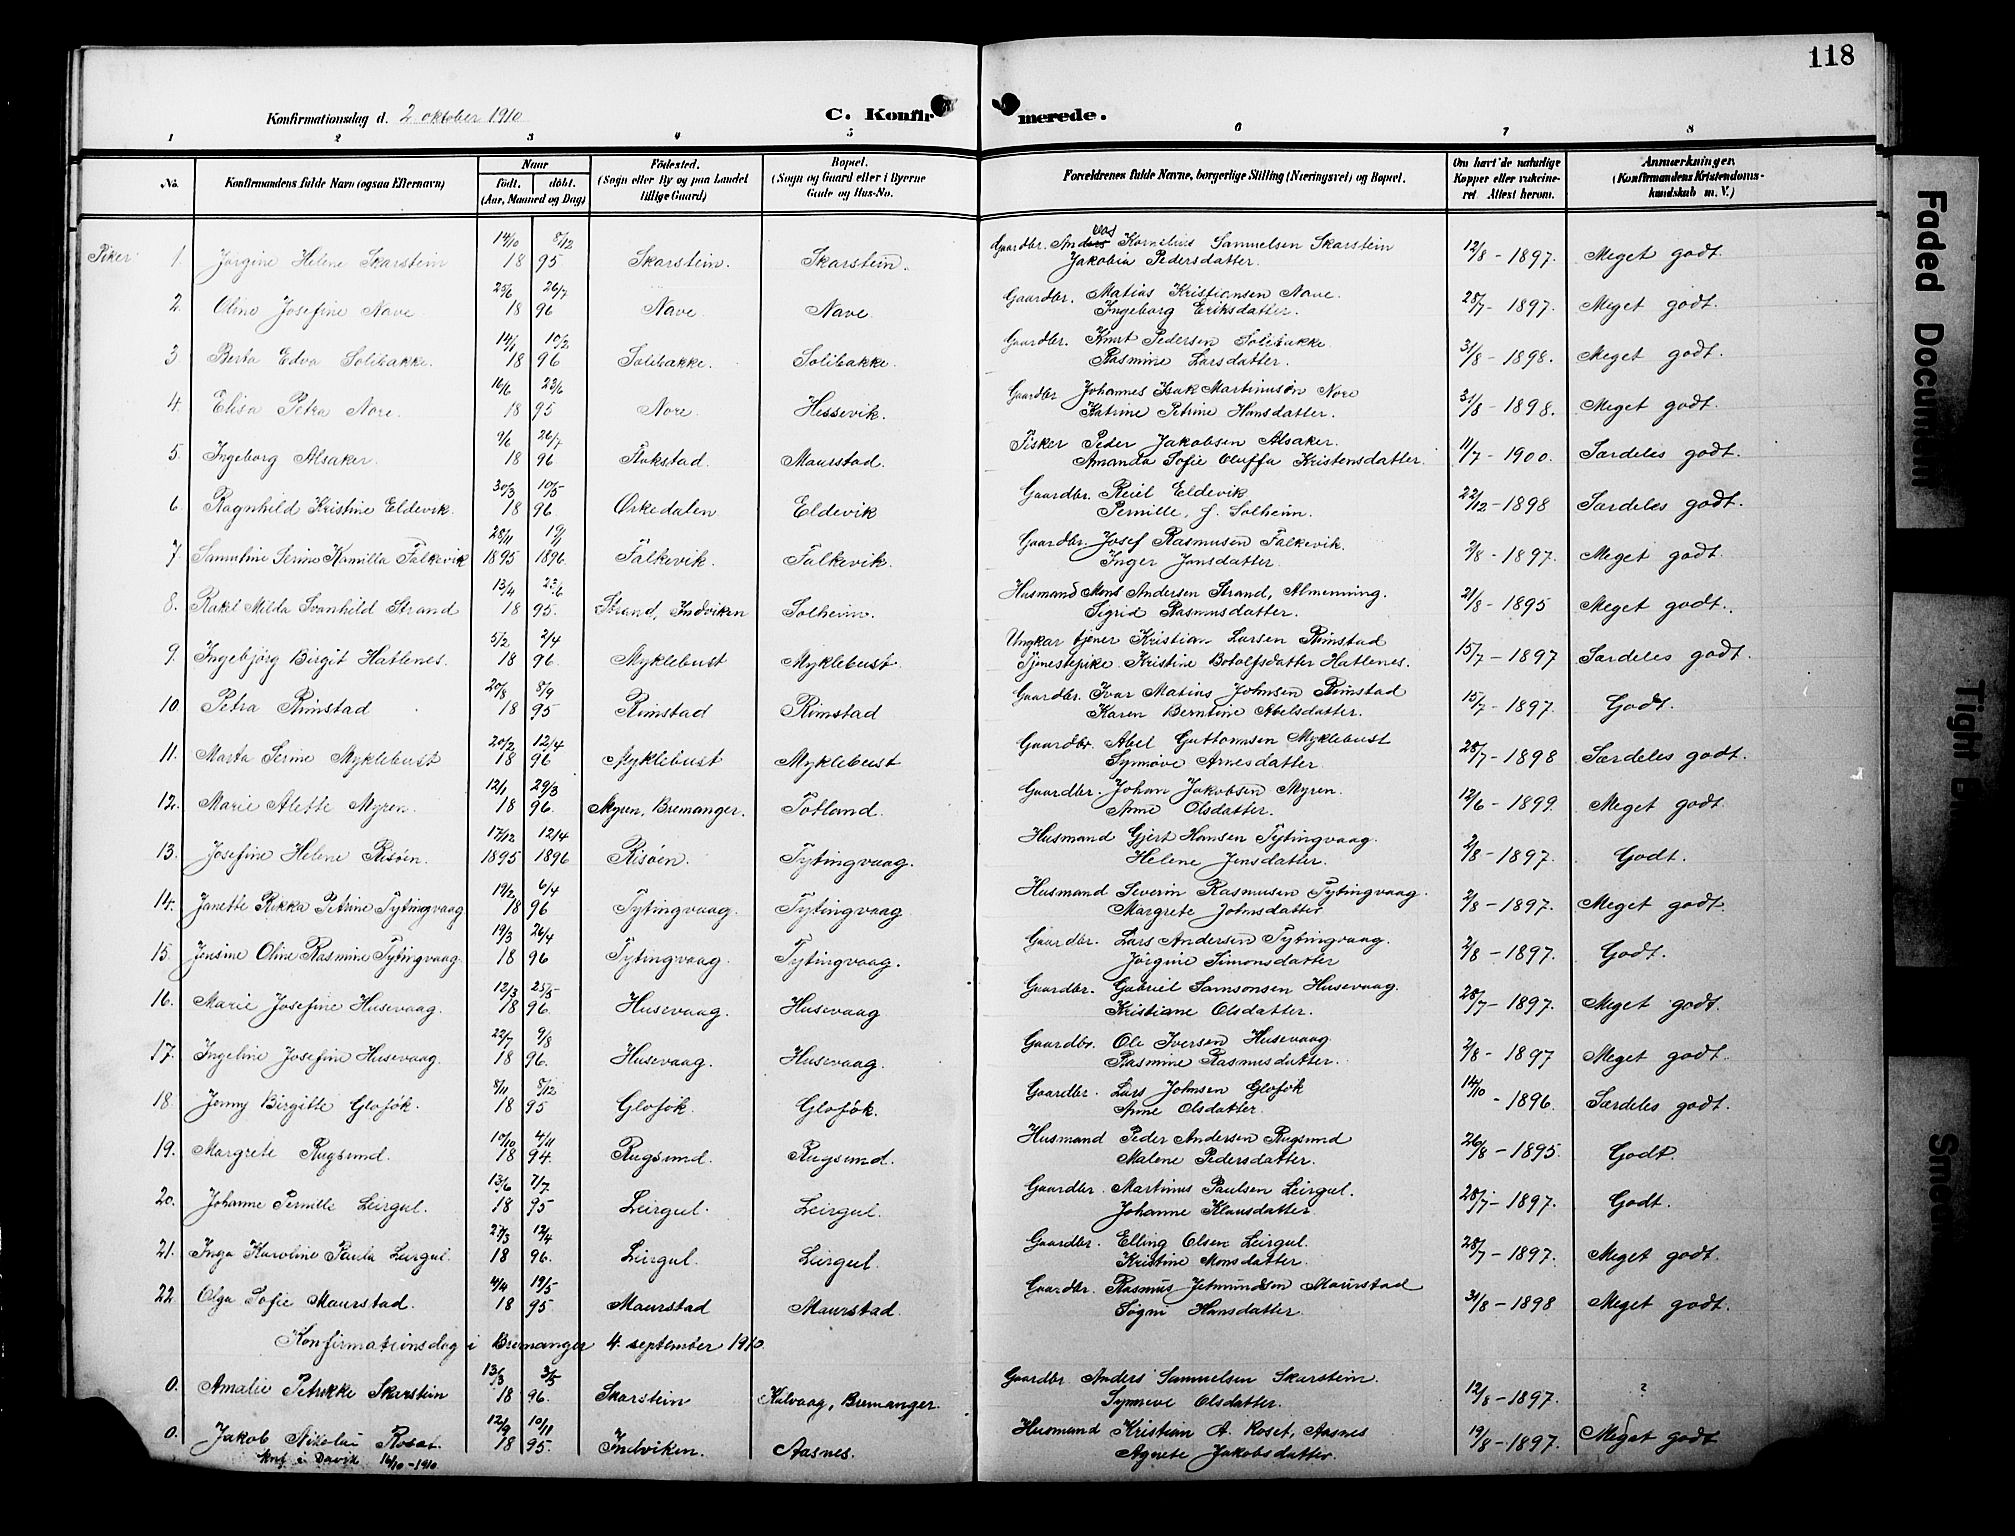 118
Konfirmationsdag d. 2 oktober 1910
C. Konfir merede.
1 2 3 4 5 6 7 8
No. Konfirmandens fulde Navn (ogsaa Efternavn) Naar födt. döbt. (Aar, Maaned og Dag) Födested. (Sogn eller By og paa Landet tillige Gaard) Bopæl. (Sogn og Gaard eller i Byerne Gade og Hus-No. Forældrenes fulde Navne, borgerlige Stilling (Næringsvei) og Bopæl. Om havt de naturlige Kopper eller vaccineret Attest herom. Anmærkninger. (Konfirmandens Kristendomskundskab m. V.)
Piker 1 Jørgine Helene Skarstein 14/10 8/12 18 95 Skarstein. Skarstein. Gaardbr. Kornelius Samuelsen Skarstein Jakobia Pedersdatter. 12/8 - 1897. Meget godt.
2 Oline Josefine Nave. 25/6 26/7 18 96 Nave. Nave. Gaardbr. Matias Kristiansen Nave. Ingeborg Eriksdatter. 28/7 - 1897. Meget godt.
3 Berta Edva Solibakke. 14/1 10/2 18 96 Solibakke. Solibakke. Gaardbr. Knut Pedersen Solibakke Rasmine Larsdatter. 31/8 - 1898. Meget godt.
4. Elisa Petra Nore. 16/6 23/6 18 95 Nore. Hessevik. Gaardbr Johannes Isak Martinusøn Nore Katrine Petrine Hansdatter. 31/8 - 1898. Meget godt.
5. Ingeborg Alsaker. 9/6 26/7 18 96 Stokstad. Maurstad. Fisker Peder Jakobsen Alsaker. Amanda Sofie Oluffa Kristensdatter. 11/7 - 1900. Særdeles godt.
6 Ragnhild Kristine Eldevik. 30/3 10/5 18 96 Ørkedalen Eldevik Gaardbr. Reiel Eldevik Pernille, f. Solheim. 22/12 - 1898 Særdeles godt.
7 Samutine Serine Kamilla Falkevik 28/11 19/1 1895 1896 Falkevik. Falkevik. Gaardbr. Josef Rasmusen Falkevik. Inger Jansdatter. 2/8 - 1897. Meget godt.
8. Rakel Milda Svanhild Strand 13/4 23/6 18 95. Strand, Indviken Solheim. Husmand Mons Andersen Strand, Almenning. Sigrid Rasmusdatter. 21/8 - 1895 Meget godt.
9. Ingebjörg Birgit Hatlenes. 5/2 2/4 18 96. Myklebust Myklebust. Ungkar tjener Kristian Larsen Rimstad Tjenestepike Kristine Botolfsdatter Hatlenes. 15/7 - 1897 Særdeles godt.
10. Petra Rimstad 20/8 8/9 18 95 Rimstad Rimstad Gaardbr. Ivar Matias Johnsen Rimstad Karen Berntine Abelsdatter. 15/7 - 1897. Godt.
11. Marta Serine Myklebust 20/2 12/4 18 96 Myklebust Myklebust Gaardbr. Abel Guttormsen Myklebust Synnøve Arnesdatter. 28/7 - 1898 Særdeles godt.
12. Marie Alette Myren. 12/1 29/3 18 96 Myren, Bremanger. Totland. Gaardbr. Johan Jakobsen Myren. Anne Olsdatter. 12/6 - 1899. Meget godt.
13. Josefine Helene Risøen. 17/12 12/4 1895 1896 Risøen. Tytingvaag. Husmand Gjert Hansen Tytingvaag. Helene Jensdatter. 2/8 - 1897. Godt.
14. Janette Rikka Petrine Tytingvaag 19/2 6/4 18 96 Tytingvaag. Tytingvaag Husmand Severin Rasmusen Tytingvaag. Margrete Johnsdatter 2/8 - 1897. Meget godt.
15. Jensine Oline Rasmine Tytingvaag 19/3 26/4 18 96 Tytingvaag. Tytingvaag. Gaardbr. Lars Andersen Tytingvaag. Jørgine Simonsdatter 2/8 - 1897. Godt.
16. Marie Josefine Husevaag. 12/3 25/5 18 96. Husevaag. Husevaag Gaardbr. Gabriel Samsonsen Husevaag. Kristiane Olsdatter. 28/7 - 1897. Meget godt.
17. Ingeline Josefine Husevaag. 22/7 9/8 18 96. Husevaag. Husevaag. Gaardbr. Ole Iversen Husevaag Rasmine Rasmusdatter. 2/8 - 1897 Meget godt.
18. Jenny Birgitte Glofök. 8/11 8/12 18 95 Glofök Glofök. Gaardbr. Lars Johnsen Glofök Anne Olsdatter. 14/10 - 1896. Særdeles godt.
19. Margrete Rugsund. 10/10 4/11 18 94. Rugsund. Rugsund. Husmand Peder Andersen Rugsund Malene Pedersdatter. 26/8 - 1895. Godt.
20. Johanne Pernille Leirgul. 13/6 7/7 18 95 Leirgul. Leirgul. Gaardbr. Martinus Paulsen Leirgul. Johanne Klausdatter. 28/7 - 1897. Godt.
21. Inga Karoline Paula Leirgul. 27/3 12/4 18 96. Leirgul. Leirgul. Gaardbr. Elling Olsen Leirgul. Kristine Monsdatter. 28/7 - 1897. Meget godt.
22 Olga Sofie Maurstad. 4/4 19/5 18 95 Maurstad Maurstad. Gaardbr. Rasmus Jetmundsen Maurstad Søgni Hansdatter. 31/8 - 1898 Meget godt.
Konfirmationsdag i Bremanger 4. september 1910.
0. Amalie Petrikke Skarstein 13/3 3/5 18 96. Skarstein Kalvaag, Bremanger. Gaardbr Anders Samuelsen Skarstein. Synneve Olsdatter. 12/8 - 1897. ?
0. Jakob Nikolai Roset. 12/9 10/11 18 95. Indviken. Aasnes. Husmand Kristian A. Roset, Aasnes Agnete Jakobsdatter. 19/8 - 1897. Meget godt
konf i Davik 16/10 - 1910
Faded Document
Tight B
Smo